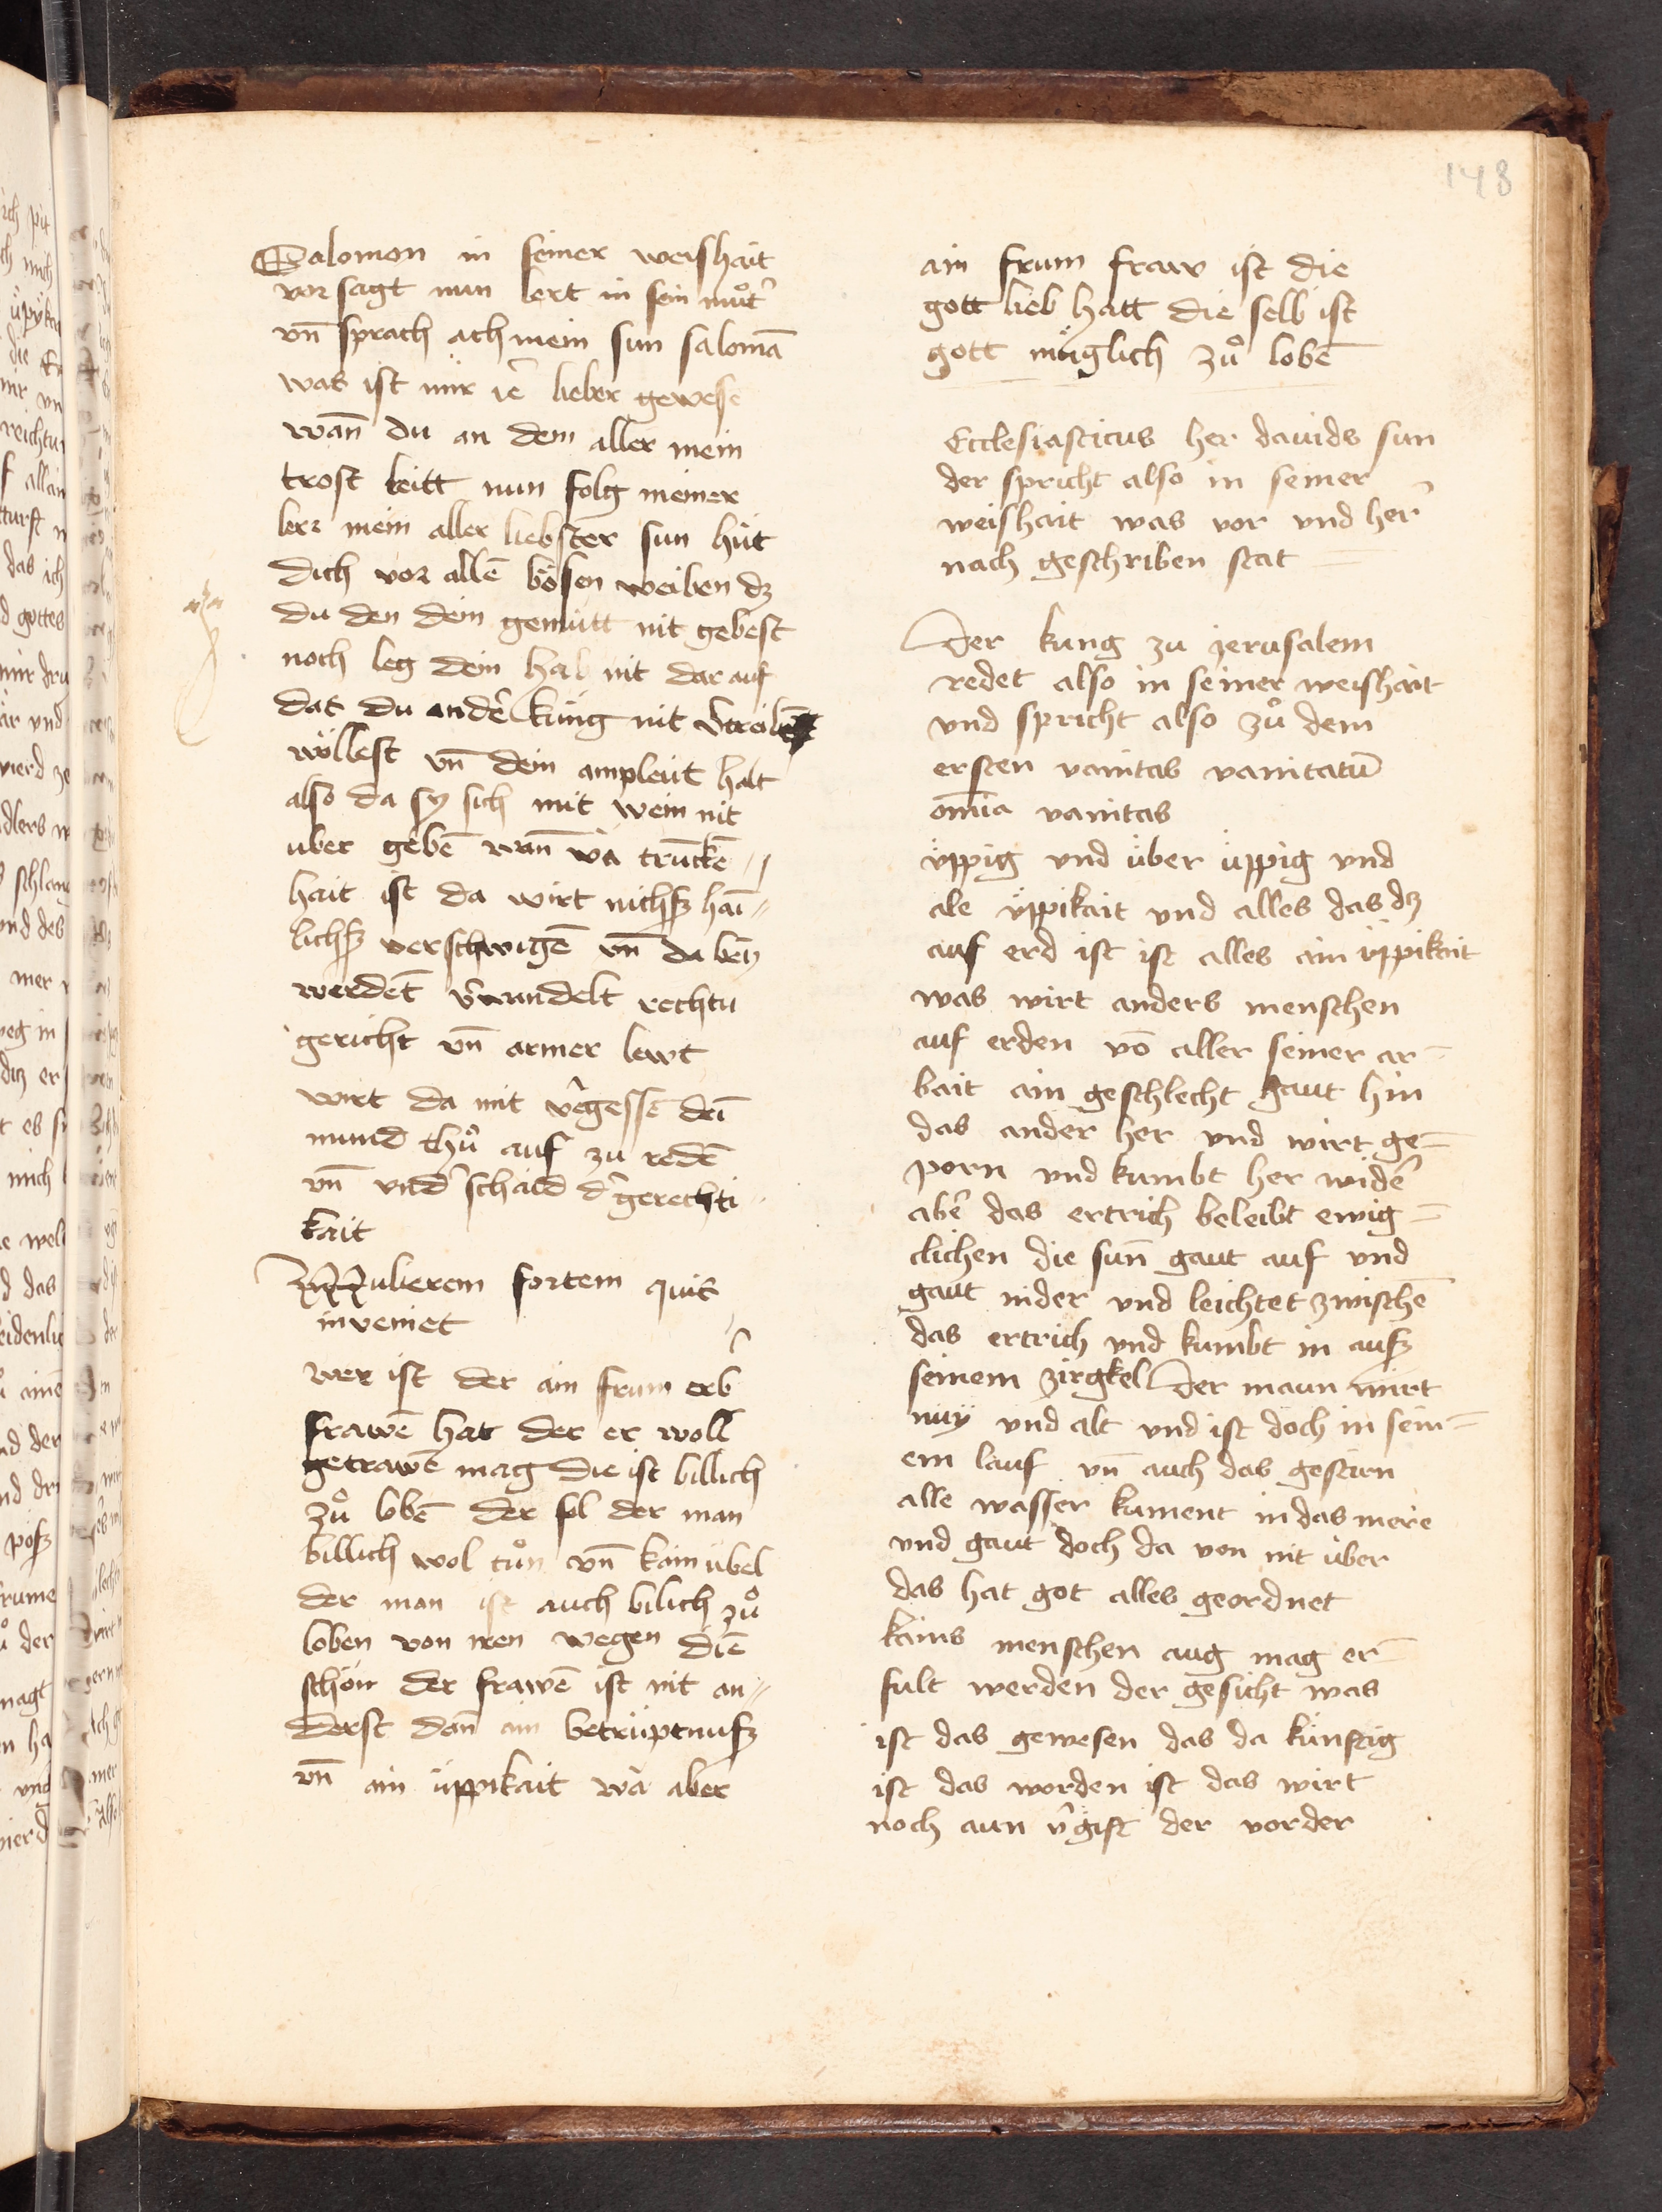 148
Salomon in seiner weishait
vor sagt nun lert in sein muͦtˀ
vn̄ sprach ach mein sun salomā
was ist mir ie lieber gewese
wan̄ du an dem aller mein
trost leitt nun folg meiner
lerr mein aller liebster sun hüt
dich vor allē bösen weiben dz
du den dein gemütt nit gebest
noch leg dein hab nit dar auf
dat du anderˀ küng nit vˀtreibē
wöllest vn̄ dein ampleüt halt
also da sy sich mit wein nit
uber gebē wan̄ wa trunckē //
hait ist da wirt nichsz hai //
lichsz verschwigē vn̄ da beÿ
werdēt vˀwandelt rechtu
gericht vn̄ armer lewt
wirt da mit vˀgessē dei
mund thuͦ auf zu redē
vn̄ vndˀschaid dˀ gerechti //
kait
Mulierem fortem quis
inveniet
wer ist der ain frum erb
frawē hat der er woll
getrawē mag die ist billich
zuͦ lobē der sol der man
billich wol tuͦn vn̄ kain übel
der man ist auch bilich zuͦ
loben von iren wegen diē
schön der frawē ist nit an //
derst dan̄ ain betrüptnusz
vn̄ ain üppikait wa aber
ain frum fraw ist die
gott lieb hatt die selb ist
gott müglich zuͦ lobē
Ecclesiasticus her dauids sun
der spricht also in seiner
weishait was vor vnd herˀ
nach geschriben stat
Der kung zu jerusalem
redet also in seiner weishait
vnd spricht also zuͦ dem
ersten vanitas vanitatū
omīa vanitas
üppig vnd über üppig vnd
ale üppikait vnd alles das dz
auf erd ist ist alles ain üppikait
was wirt anders menschen
auf erden vō aller seiner ar=
bait ain geschlecht gaut hin
das ander her vnd wirt ge=
porn vnd kumbt her widerˀ
aberˀ das ertrich beleibt ewig=
clichen die sun̄ gaut auf vnd
gaut nider vnd leichtet zwischē
das ertrich vnd kumbt in ausz
seinem zirgkel Der maun wirt
nuÿ vnd alt vnd ist doch in sein=
em lauf vn̄ auch das gestirn
alle wasser kument in das mere
vnd gaut doch da von nit über
das hat got alles geordnet
kains menschen aug mag er=
fult werden der gesicht was
ist das gewesen das da künftig
ist das worden ist das wirt
noch aun vˀgift der vorder